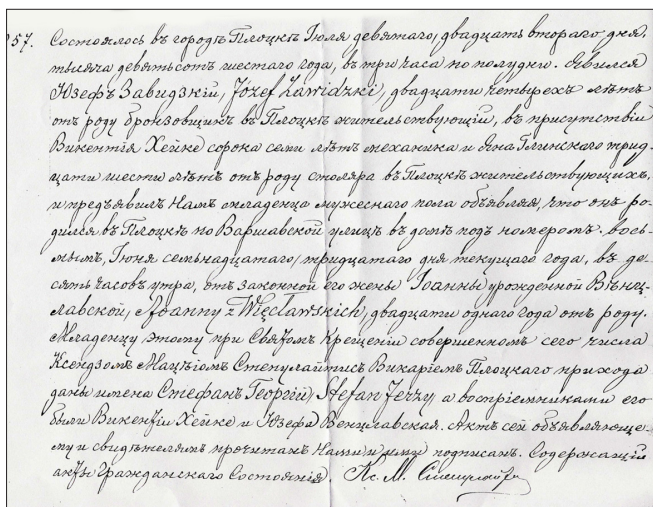 257. Состоялось въ городѣ Плоцкѣ Іюля девятаго, двадцать втораго дня,
тысяча девятьсотъ шестаго года, въ три часа по полудни. Явился
Юзефъ Завидзкій, Józef Zawidzki, двадцати четырехъ лѣтъ
отъ роду бронзовщикъ въ Плоцкѣ жительствующій, въ присутствіи
Викентія Хейке сорока семи лѣтъ механика и Яна Глинскаго трид-
цати шести лѣтъ отъ роду столяра въ Плоцкѣ жительствующихъ,
и предъявилъ Намъ младенца мужескаго пола объявляя, что онъ ро-
дился въ Плоцкѣ по Варшавской улицѣ въ домѣ подъ номеромъ вось-
мымъ, Іюня семьнадцатаго, тридцатаго дня текущаго года, въ де-
сять часовъ утра, отъ законной его жены Іоанны урожденной Вѣнц-
лавской, Joanny z Więcławskich, двадцати одного года отъ роду.
Младенцу этому при Святомъ Крещеніи совершенномъ сего числа
Ксендзомъ Мацѣіомъ Стенулайтисъ Викаріемъ Плоцкаго прихода
даны имена Стефанъ Георгій, Stefan Jerzy а воспріемниками его
были Викентій Хейке и Юзефа Венцлавская. Актъ сей объявляюще-
му и свидѣтелямъ прочитанъ Нами и ими подписанъ. Содержащій
акты Гражданскаго Состоянія. Кс. М.